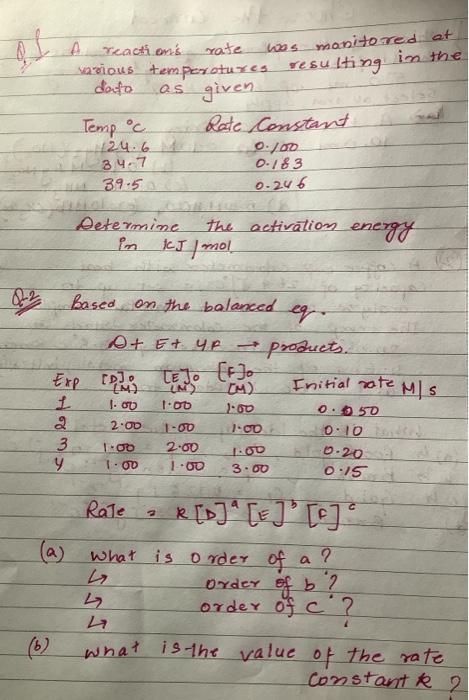 Q.1 A reaction's rate was monitored at
various temperatures resulting in the
data as given
Temp °C Rate Constant
24.6 0.100
34.7 0.183
39.5 0.246
Determine the activation energy
in kJ/mol.
Q-2 Based on the balanced eq.
D + E + 4F → products.
Exp [D]o (M) [E]o (M) [F]o (M) Initial rate M/s
1 1.00 1.00 1.00 0.050
2 2.00 1.00 1.00 0.10
3 1.00 2.00 1.00 0.20
4 1.00 1.00 3.00 0.15
Rate = k [D]ᵃ [E]ᵇ [F]ᶜ
(a) what is order of a ?
↳ order of b ?
↳ order of c ?
↳
(b) what is the value of the rate
constant k ?